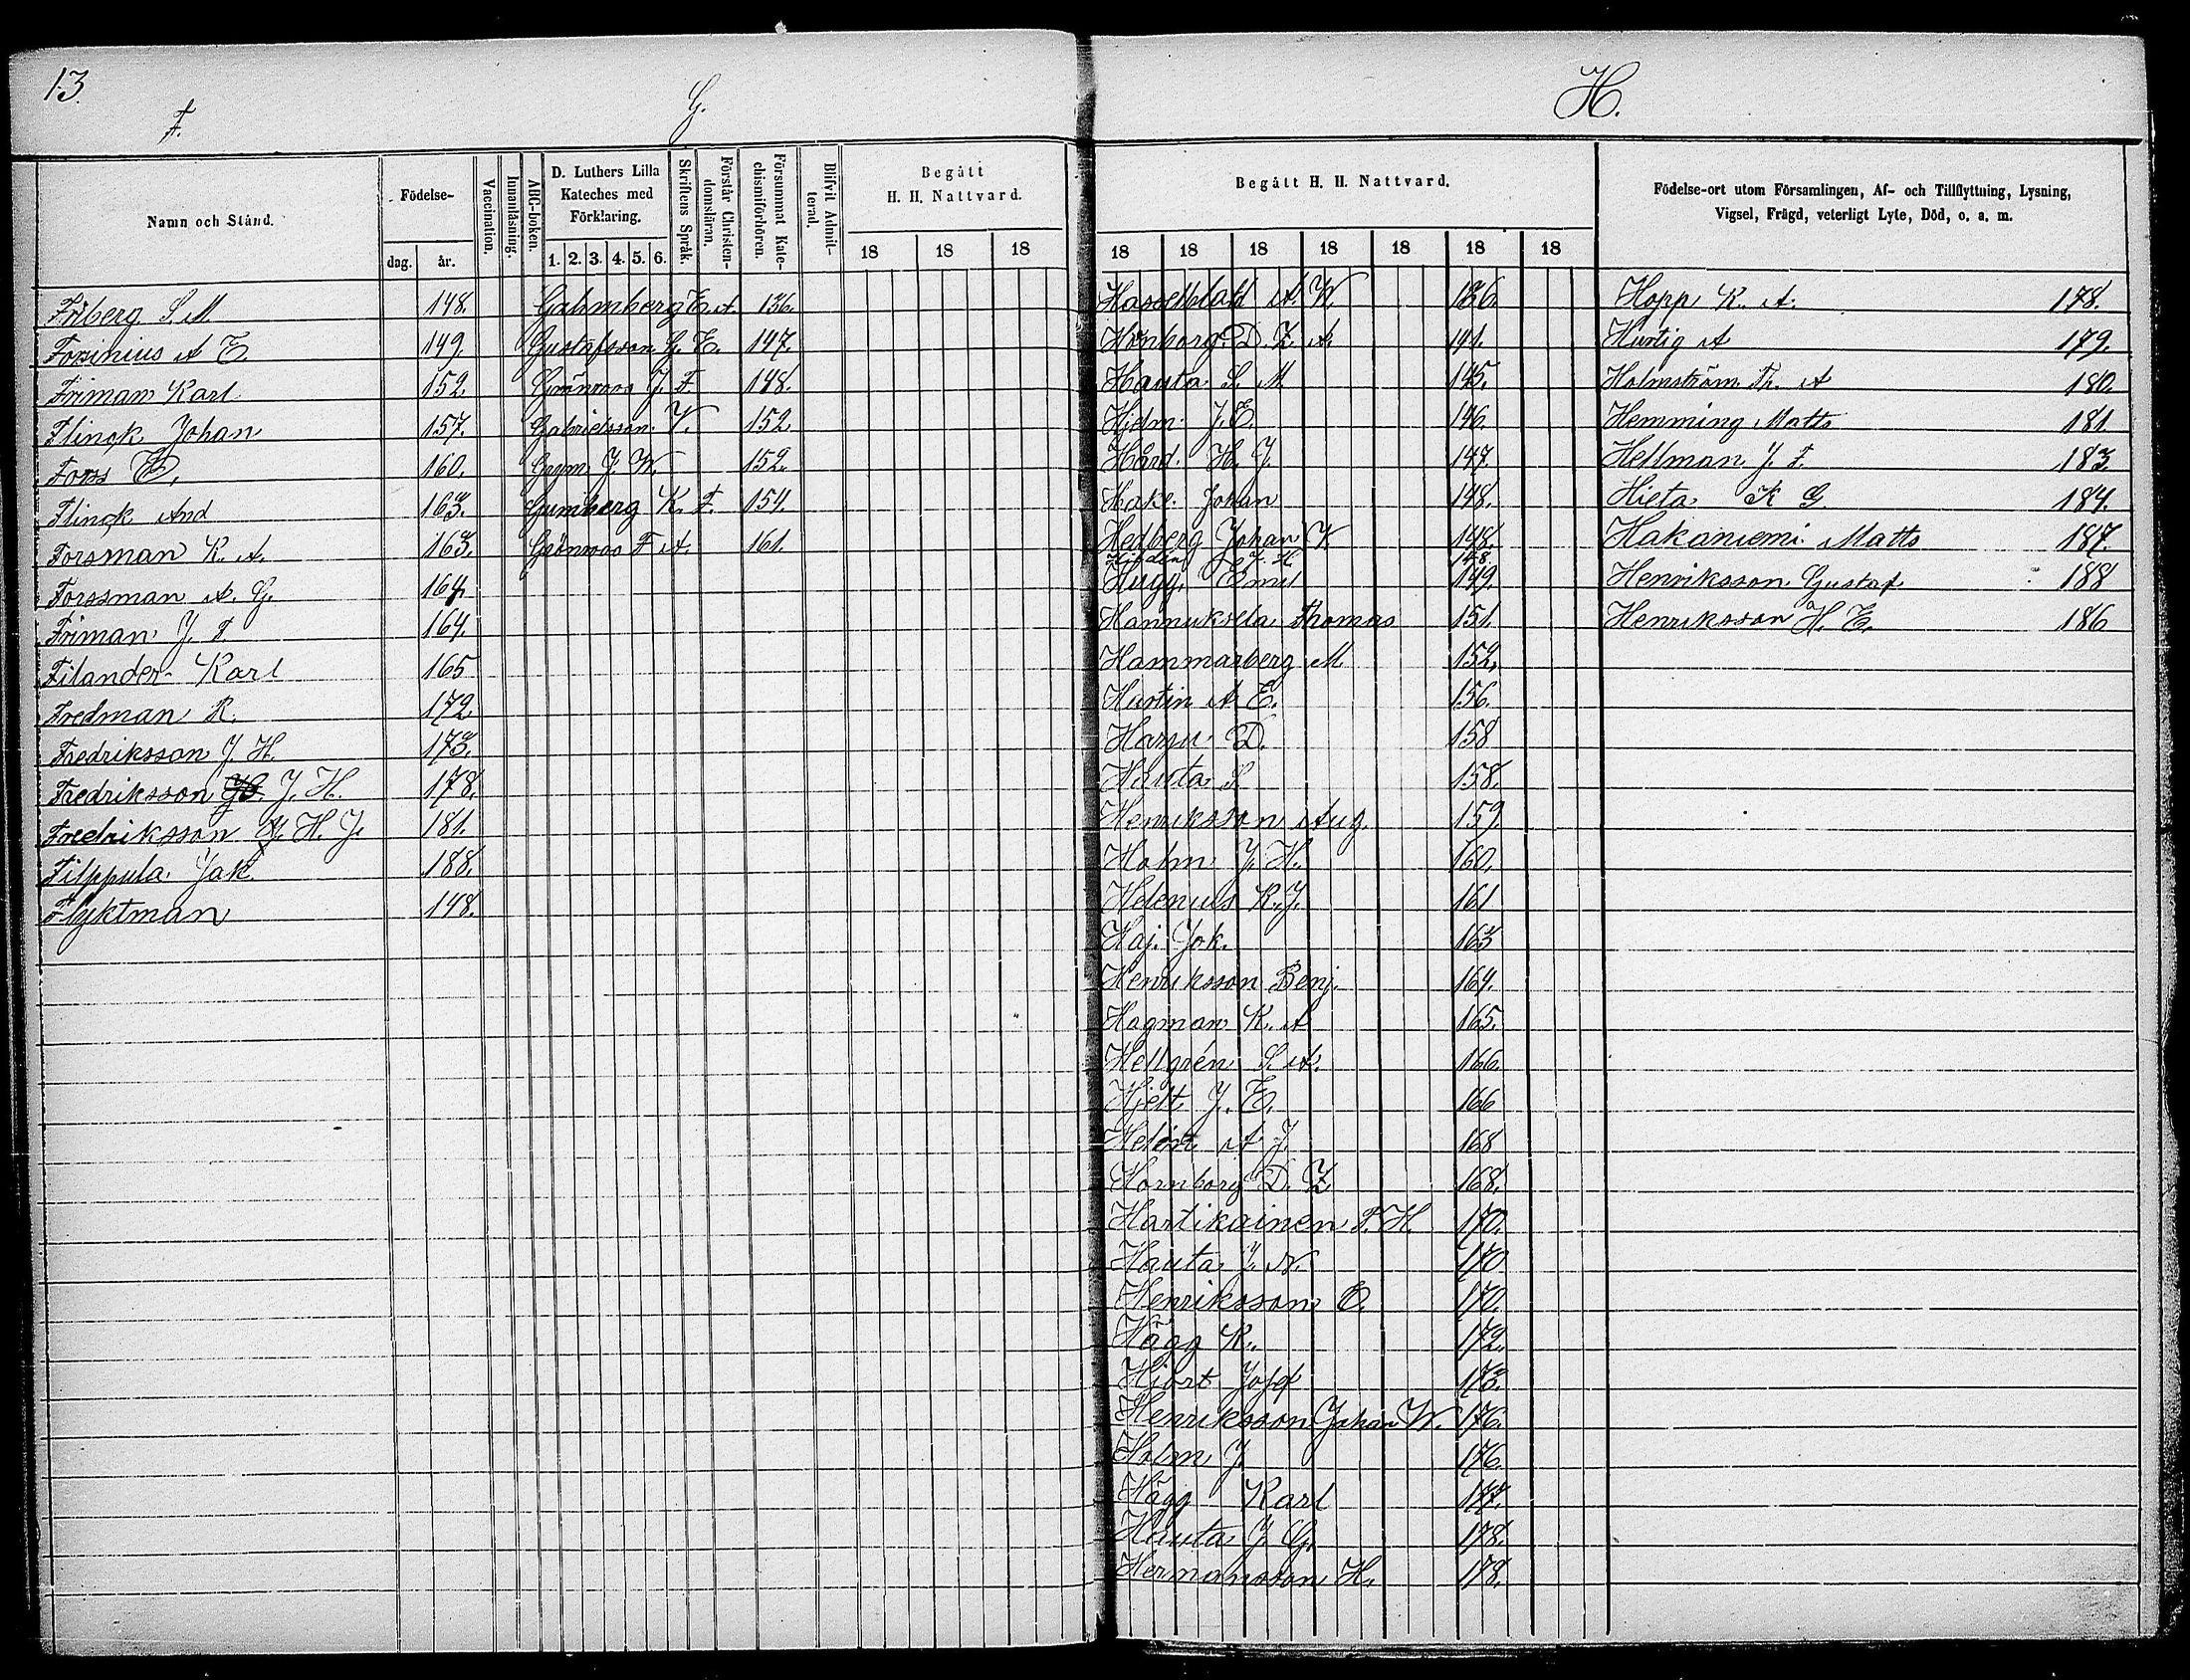 13.
F.
G.
Namn och Stånd.
Födelse-
dag.
år.
Vaccination.
Innanläsning.
ABC-boken.
D. Luthers Lilla
Kateches med
Förklaring.
1. 2. 3. 4. 5. 6.
Skriftens Språk.
Förstår Christen-
domsläran.
Försummat Kate-
chismiförhören.
Blifvit Admit-
terad.
Begått
H. H. Nattvard.
18 18 18
Friberg S. M 148.
Forzinius A E 149.
Friman Karl 152.
Flinck Johan 157.
Forss E. 160.
Flinck And 163.
Forsman K. A. 163.
Forssman A. G. 164.
Friman J. F. 164.
Filander Karl 165
Fredman K. 172
Fredriksson J. H. 173.
Fredriksson J. H. 178.
Fredriksson J. H. J. 181.
Filppula Jak 188.
Flyktman 148.
Gahmberg E. A. 136.
Gustafsson G. E. 147.
Grönroos J. F. 148.
Gabrielsson V. 152
J. W. 152.
Gumberg K. F. 154.
Grönroos F. A. 161.
H.
Begått H. H. Nattvard.
18 18 18 18 18 18 18
Hasselblatt A. W. 136.
Hornborg D. Z. A. 141.
Hauta S. M 145.
Hjelm J. E. 146.
Hård H. J. 147.
Hake Johan 148.
Hedberg Johan V. 148.
J. H 148.
Hugg, Emil 149.
Hannuksela Thomas 151.
Hammarberg M 152.
Hurtin A E. 156.
Harju D. 158
Hauta S. 158.
Henriksson Aug. 159.
Holm J. H. 160.
Helenius K. J. 161
Haj. Jok. 163
Henriksson Benj. 164.
Hagman K. A 165.
Hellgrén S. A. 166.
Hjelt J. E. 166
Helén A J. 168
Hornborg D. Z 168.
Hartikainen F. H. 170.
Hauta J. N. 170
Henriksson E. 170.
Hägg K. 172.
Hjort Josef 173.
Henriksson Johan W. 176.
Holm J. 176.
Hägg Karl 177.
Hauta J. G. 178.
Hermansson H. 178.
Födelse-ort utom Församlingen, Af- och Tillflyttning, Lysning,
Vigsel, Frägd, veterligt Lyte, Död, o. a. m.
Hopp K. A. 178.
Hurtig A 179.
Holmström Fr. A 180.
Hemming Matts 181.
Hellman J. F. 183.
Hieta K G 184.
Hakaniemi Matts 187.
Henriksson Gustaf 188
Henriksson H. E. 186